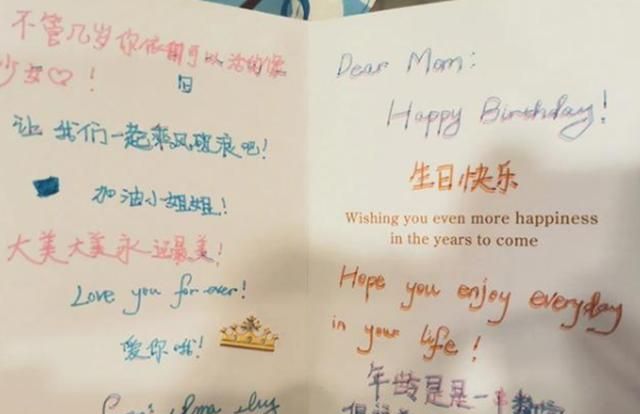 不管几岁你依旧可以活的像
少女♡!
让我们一起乘风破浪吧!
加油小姐姐!
大美大美永远最美!
Love you for ever!
爱你哦!
Dear Mom:
Happy Birthday!
生日快乐
Wishing you even more happiness
in the years to come
Hope you enjoy everyday
in your life!
年龄是是一串数